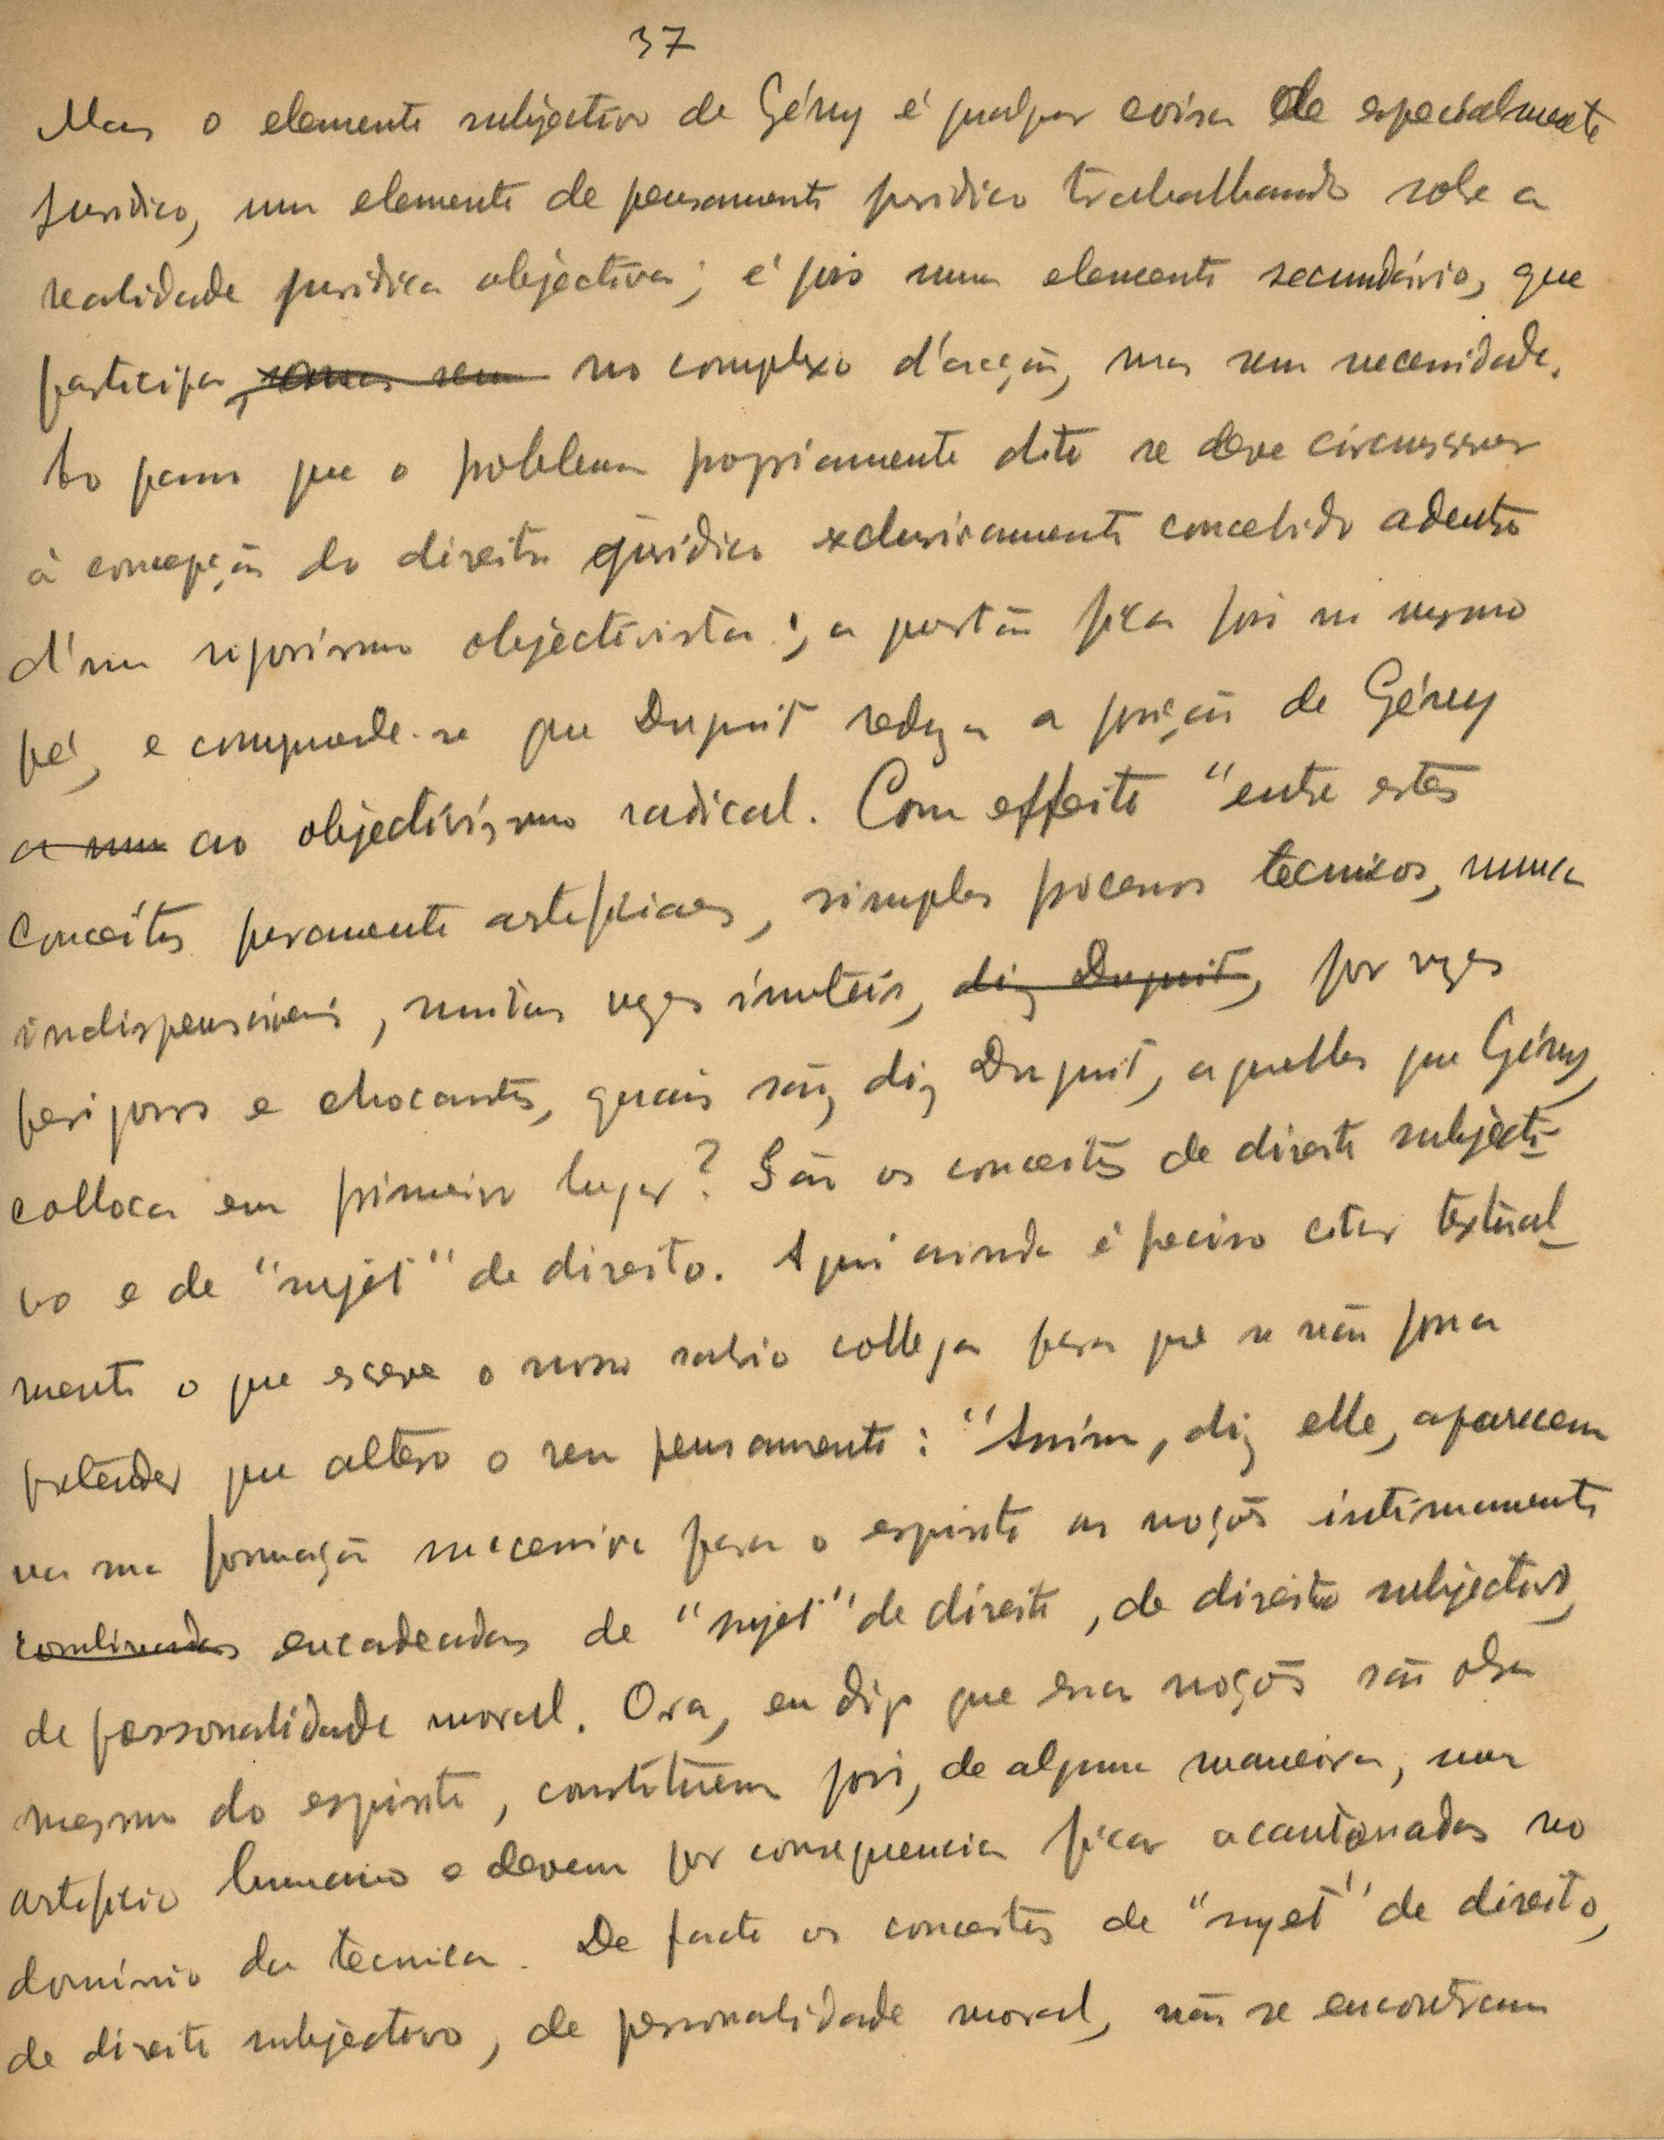 37
Mas o elemento subjectivo de Gény é qualquer coisa de especialmente
juridico, um elemento de pensamento juridico trabalhando sobre a
realidade juridica objectiva; é pois num elemento secundário, que
participa no complexo d'acção, mas sem necessidade.
ao passo que o problema propriamente dito se deve circunscrever
à concepção do direito juridico exclusivamente concebido adentro
d'um rigorismo objectivista; a questão fica pois no mesmo
pé, e comprende-se que Duguit reduza a posição de Gény
a um ao objectivismo radical. Com effeito "entre estes
conceitos puramente artificiaes, simples processos tecnicos, nunca
indispensaveis, muitas vezes inuteis, diz Duguit, por vezes
perigosos e chocantes, quais são, diz Duguit, aquelles que Gény
colloca em primeiro lugar? São os conceitos de direito subjecti-
vo e de "sujet" de direito. Aqui ainda é preciso citar textual-
mente o que escreve o nosso sabio collega para que se não possa
pretender que altero o seu pensamento: "Assim, diz elle, aparecem
na sua formação sucessiva para o espirito as noções intimamente
combinadas encadeadas de "sujet" de direito, de direito subjectivo,
de personalidade moral. Ora, eu digo que essas noções são obra
mesmo do espirito, constituem pois, de alguma maneira, um
artificio humano e devem por consequencia ficar acantonadas no
dominio da tecnica. De facto os conceitos de "sujet" de direito,
de direito subjectivo, de personalidade moral, não se encontram